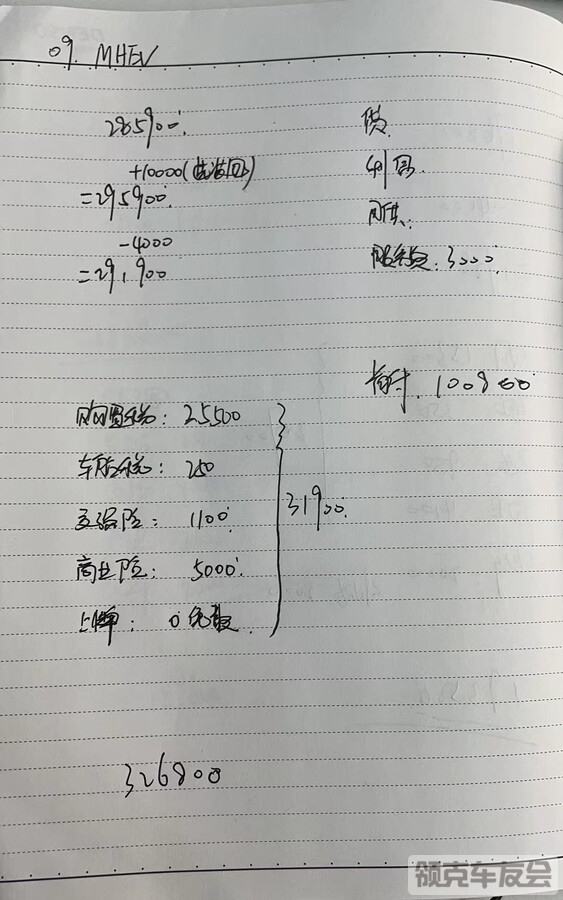 09. MHEV
285900
+10000(选装包)
=295900
-4000
=291900
贷
月供:
服务费:3000
首付. 100800
购置税: 25500
车船税: 250
交强险: 1100
商业险: 5000
上牌: 0 免费
31900
326800
领克车友会